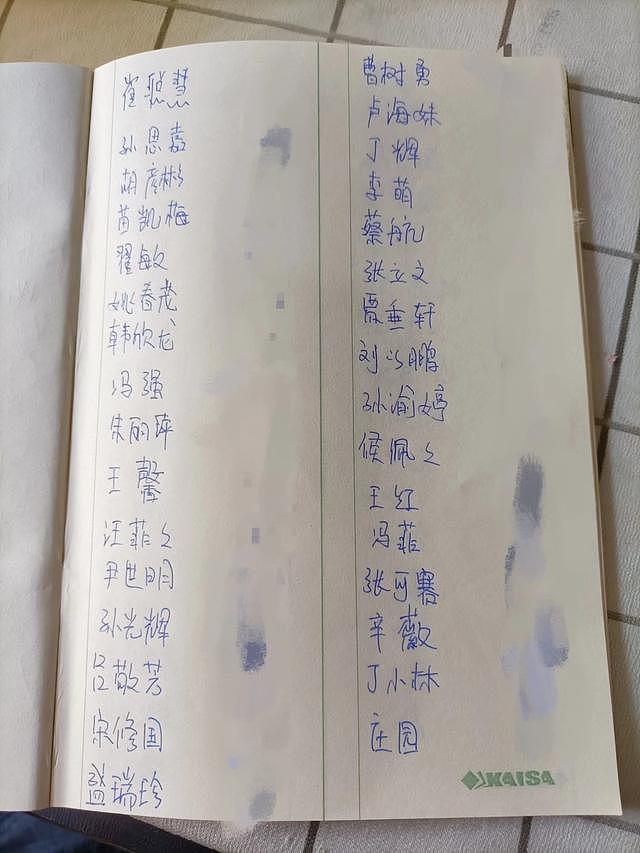 崔聪慧
孙思嘉
胡彦彬
苗凯梅
翟敏
姚春茂
韩欣龙
冯强
朱丽萍
王馨
汪菲々
尹世明
孙光辉
吕敬芳
宋修国
益瑞珍
曹树勇
卢海妹
丁辉
李萌
蔡航
张立文
贾垂轩
刘以鹏
孙渝婷
侯佩々
王红
冯菲
张可骞
辛薇
丁小林
庄园
KAISA